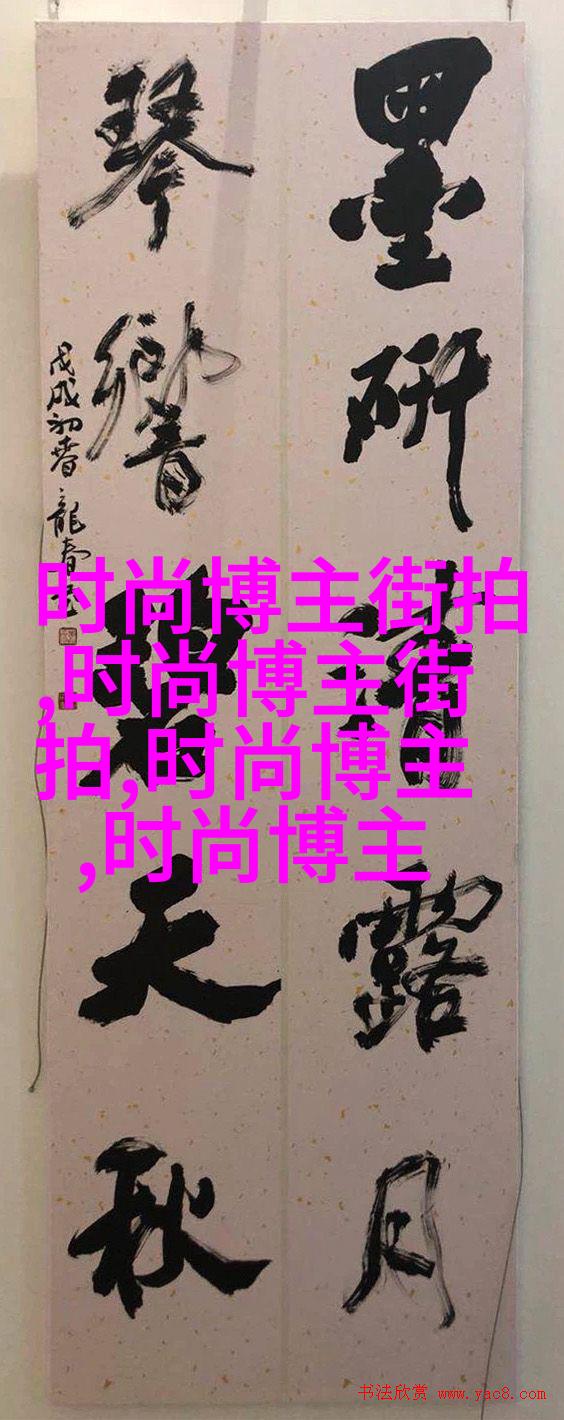 墨研清露月
琴響碧天秋
戊戌初春龍春
时尚博主街拍
,时尚博主街
拍,时尚博主
,时尚博主
书法欣赏 www.yac8.com